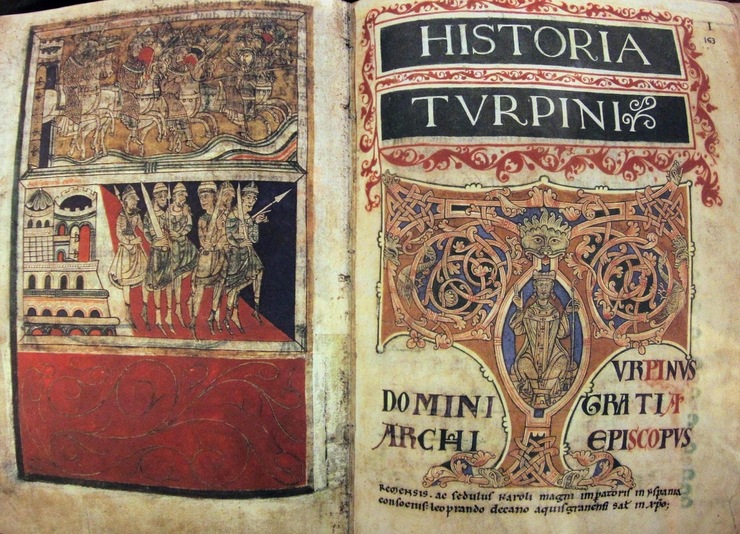 I
163
HISTORIA
TVRPINI
TURPINVS
DOMINI GRATIA
ARCHI EPISCOPVS
REMENSIS. ac sedulus karoli magni impatoris in yspania
consocius. leoprando decano aquisgranensi salt in xpo;